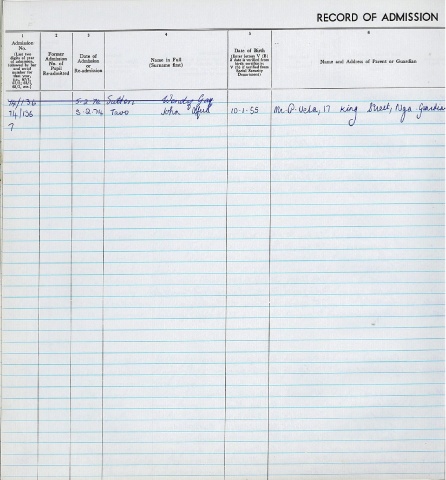 RECORD OF ADMISSION
1 2 3 4 5 6
Admission No. (Last two digits of year of admission, followed by bar and serial number for that year,
Former Admission No. of Pupil Re-admitted
Date of Admission or Re-admission
Name in Full (Surname first)
Date of Birth (Enter letters V (B) if date is verified from birth certificate V (S) if verified from Social Security Department)
Name and Address of Parent or Guardian
74/136 5-2-74 Sutton Wendy Gay
74/136 5-2-74 John 10-1-55 Mr 17 King Street,
7